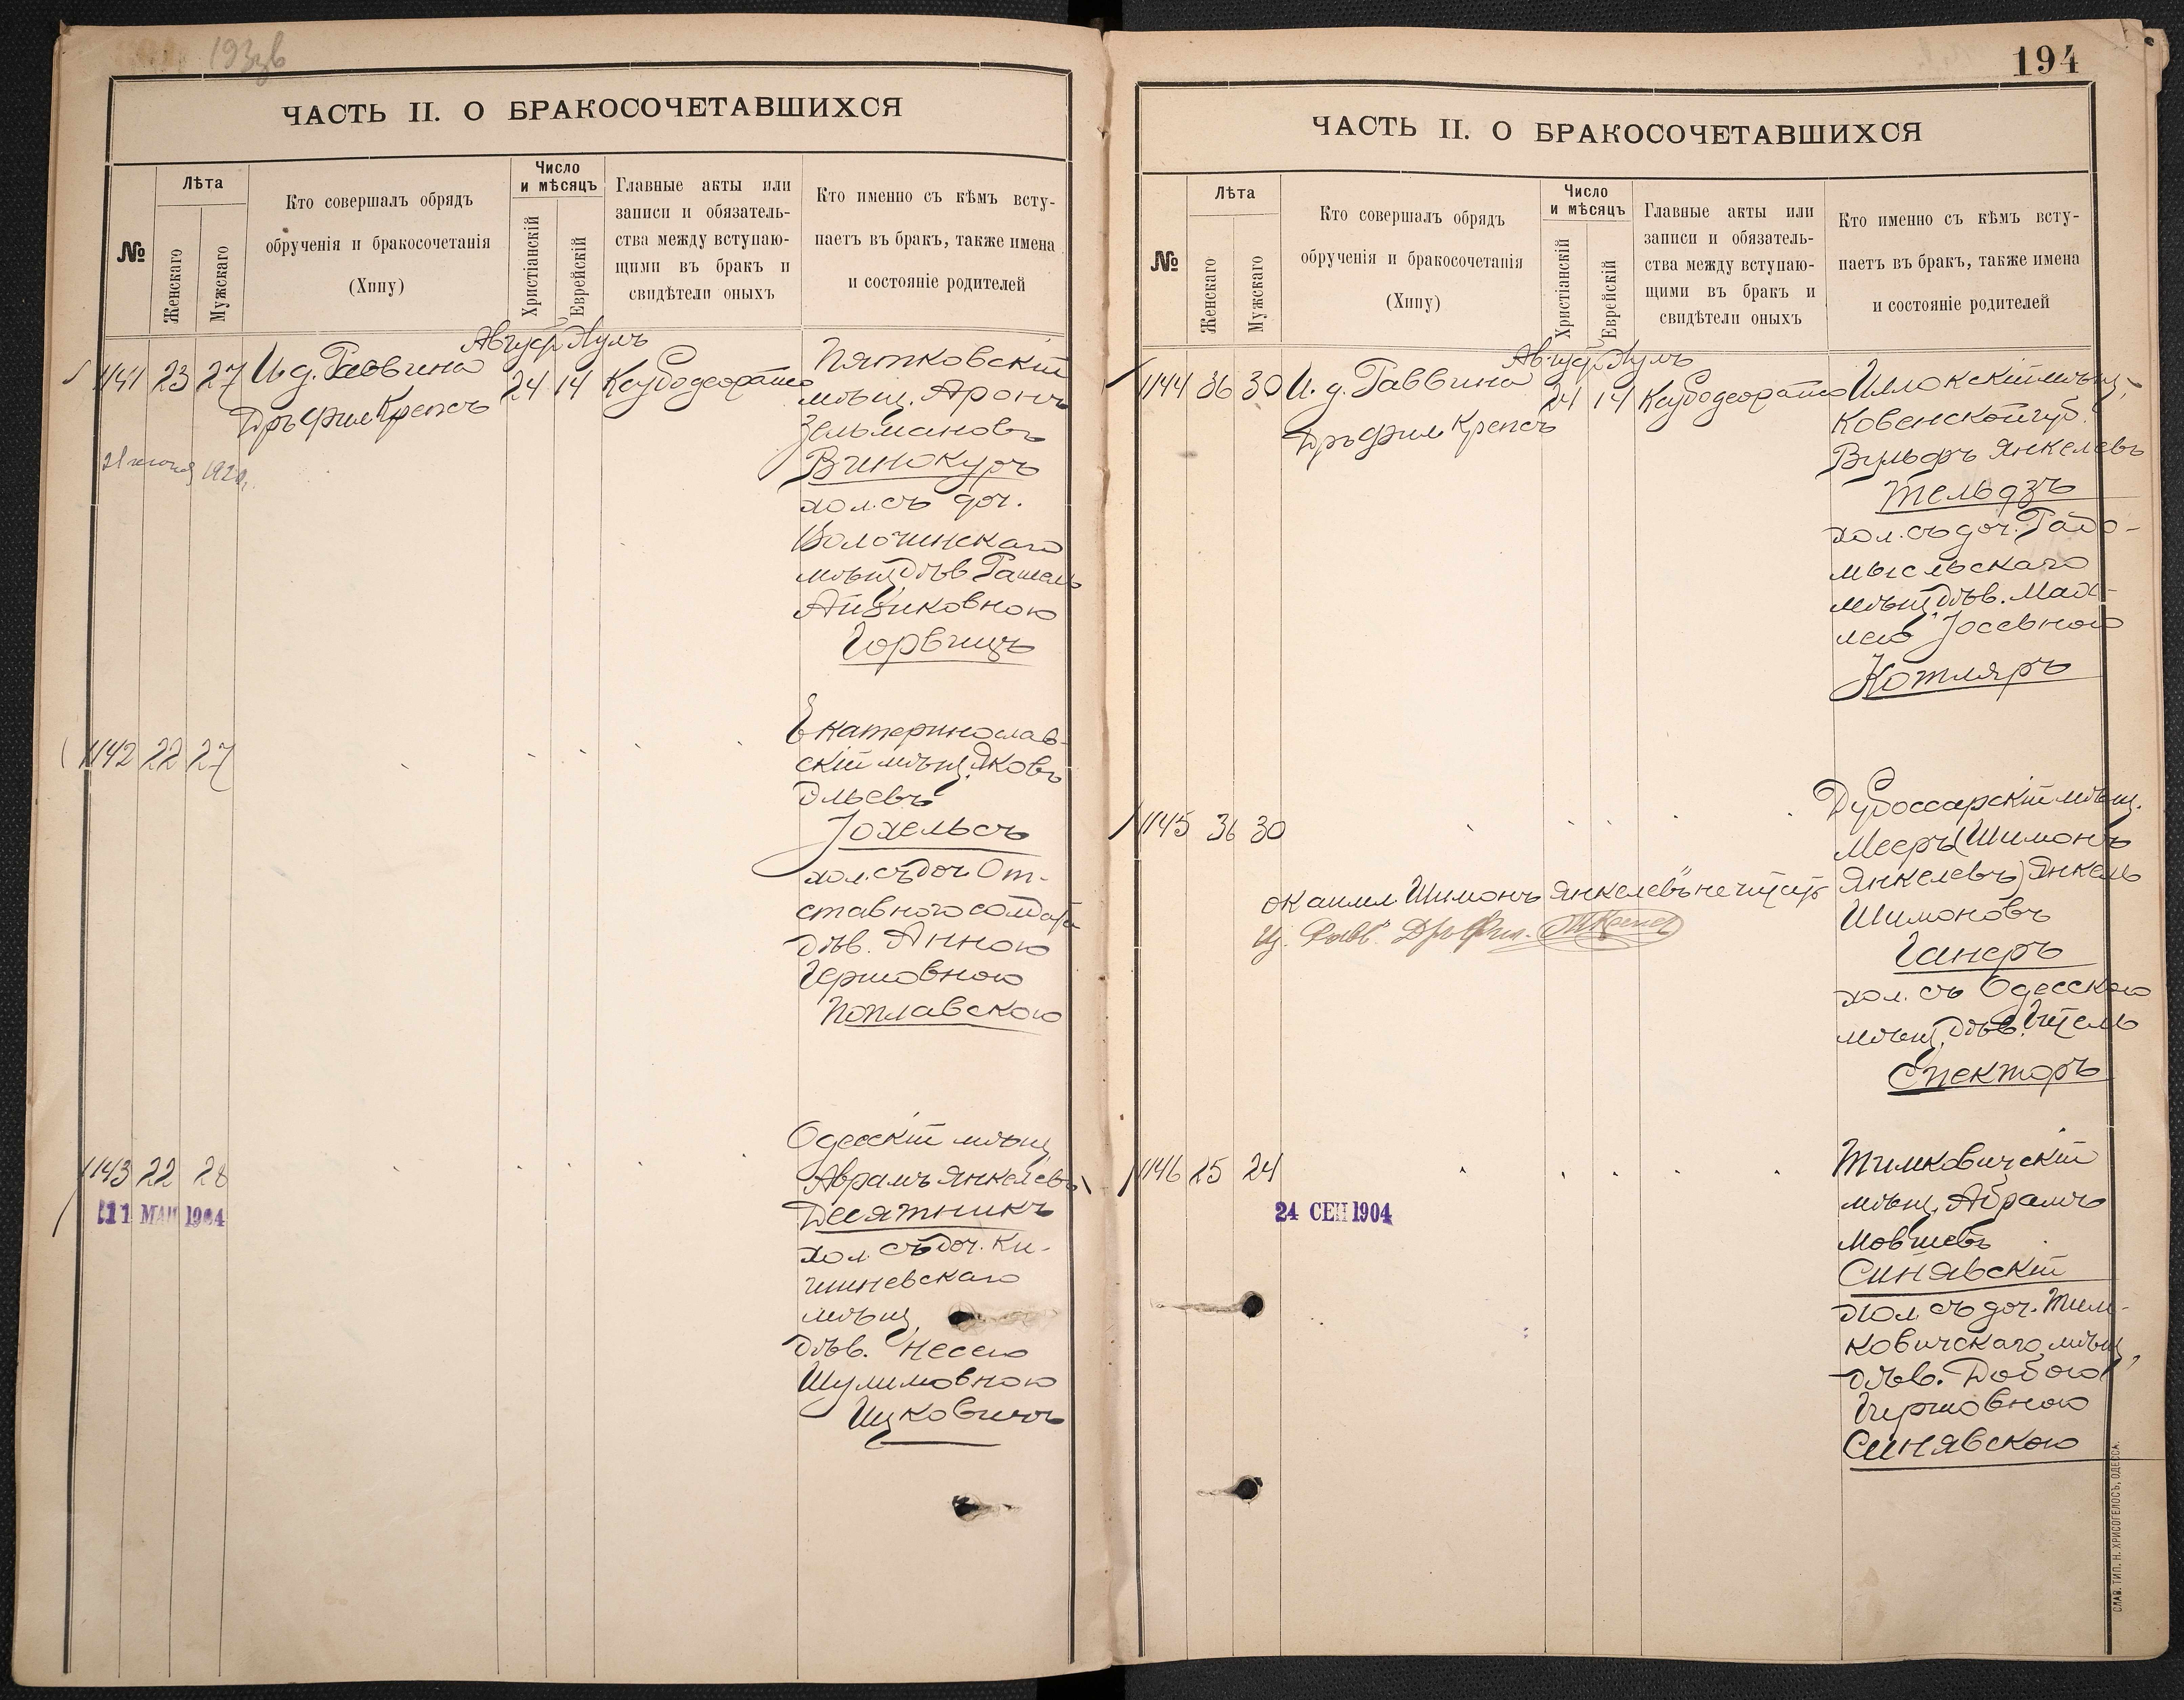 193зв
ЧАСТЬ II. О БРАКОСОЧЕТАВШИХСЯ
№
Лѣта
Женскаго
Мужскаго
Кто совершалъ обрядъ
обрученія и бракосочетанія
(Хипу)
Число
и мѣсяцъ
Христіанскій
Еврейскій
Главные акты или
записи и обязатель-
ства между вступаю-
щими въ бракъ и
свидѣтели оныхъ
Кто именно съ кѣмъ всту-
паетъ въ бракъ, также имена
и состояніе родителей
Август Элулъ
1141 23 27 И. д. Раввина 24 14
Дръ Фил Крепсъ
21 1920
Пятковскій
мѣщ. Аронъ
Зельмановъ
Винокуръ
хол. съ доч.
Волочинскаго
мѣщ. дѣв. Рашель
Айзиковною
Горвицъ
1142 22 27
Екатеринослав-
скій мѣщ. Яковъ
Эльевъ
Іохельсъ
хол. съ доч. От-
ставного солдата
дѣв. Анною
Гершовною
Поплавскою
1143 22 28
11 МАЙ 1904
Одесскій мѣщ.
Аврамъ Янкелевъ
Десятникъ
хол. съ доч. Ки-
шиневскаго
мѣщ.
дѣв. Несею
Шулимовною
Ицковичъ
194
ЧАСТЬ II. О БРАКОСОЧЕТАВШИХСЯ
№
Лѣта
Женскаго
Мужскаго
Кто совершалъ обрядъ
обрученія и бракосочетанія
(Хипу)
Число
и мѣсяцъ
Христіанскій
Еврейскій
Главные акты или
записи и обязатель-
ства между вступаю-
щими въ бракъ и
свидѣтели оныхъ
Кто именно съ кѣмъ всту-
паетъ въ бракъ, также имена
и состояніе родителей
Август Элулъ
1144 36 30 И. д. Раввина 24 14
Дръ Фил Крепсъ
Иллокскій мѣщ.
Ковенской губ.
Вульфъ Янкелевъ
Тельдзъ
хол. съ доч. Радо-
мысльскаго
мѣщ. дѣв. Мах-
лею Іосевною
Котляръ
1145 36 30
Дубоссарскій мѣщ.
Мееръ (Шимонъ
Янкелевъ) Янкель
Шимоновъ
Ганеръ
хол. съ Одесскою
мѣщ. дѣв. Ител
Спекторъ
Шимонъ Янкелевъ" не
Дръ Фил.
1146 25 24
24 СЕН 1904
Тимковичскій
мѣщ. Абрамъ
Мовшевъ
Синявскій
хол. съ доч. Тим-
ковичскаго мѣщ.
дѣв. Добою
Гершовною
Синявскою
СЛАВ. ТИП. Н. ХРИСОГЕЛОСЪ, ОДЕССА.